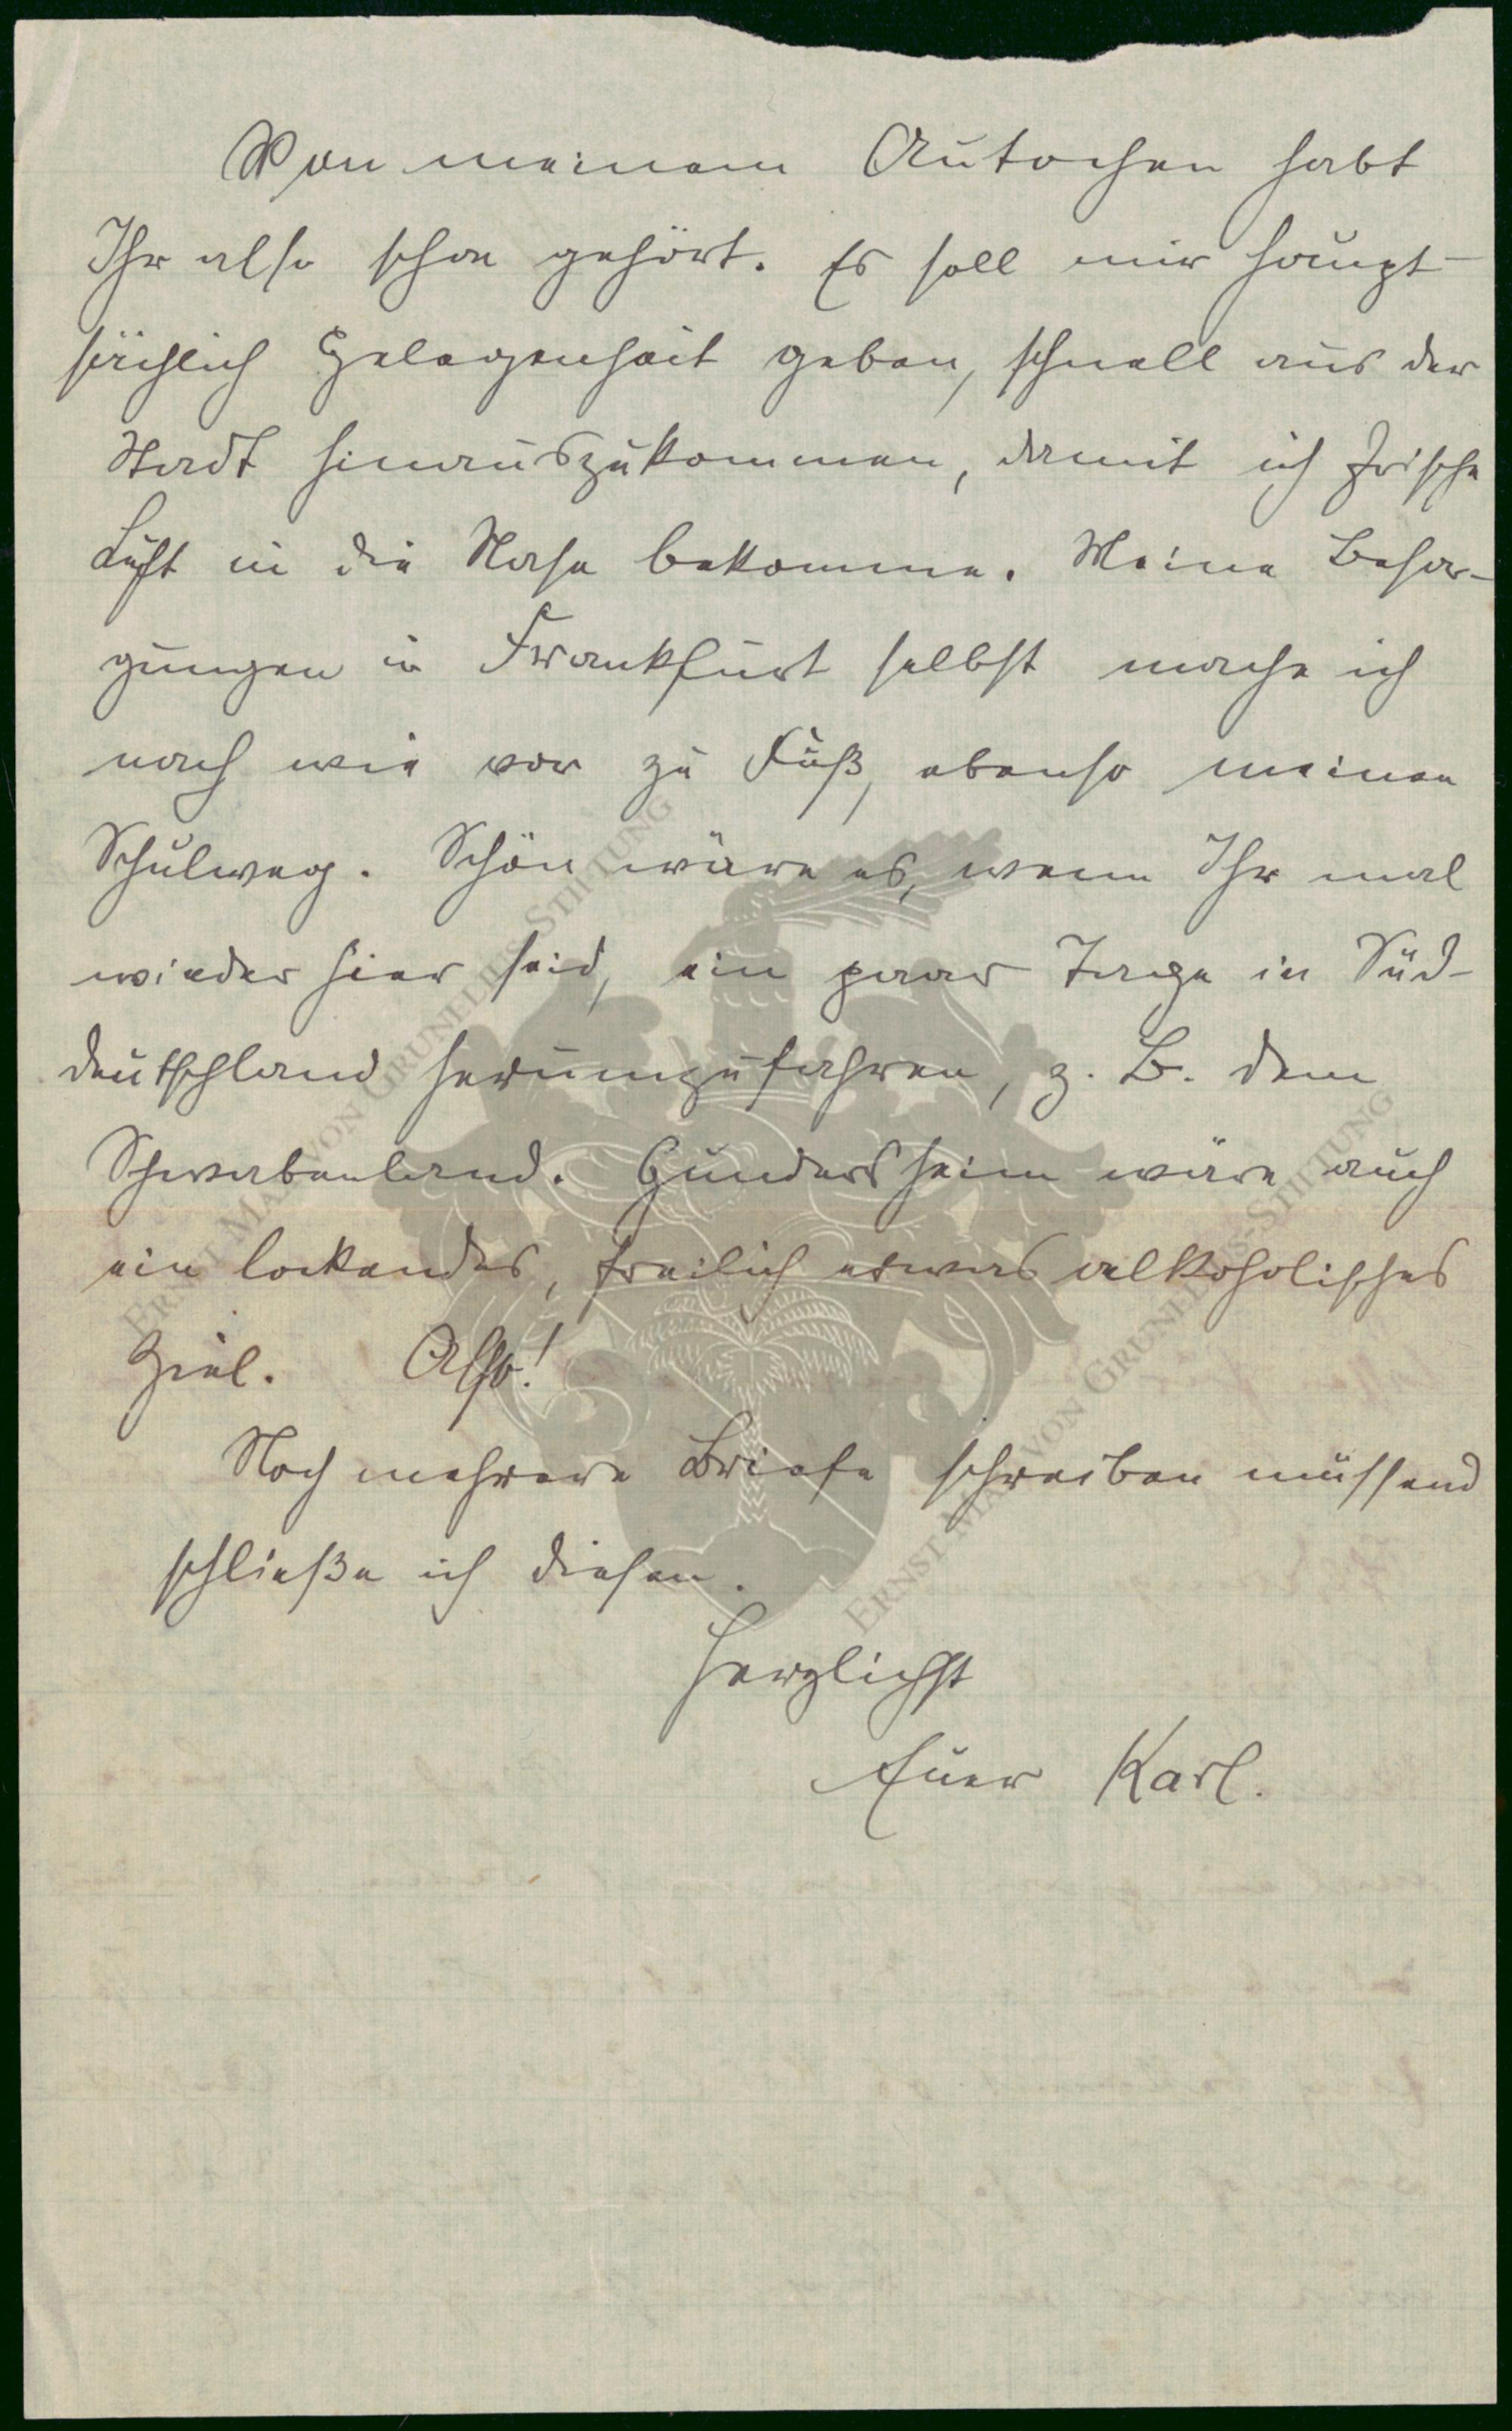 Von meinem Autochen habt
Ihr also schon gehört. Es soll mir haupt-
sächlich Gelegenheit geben, schnell aus der
Stadt hinauszukommen, damit ich frische
Luft in die Nase bekomme. Meine Besor-
gungen in Frankfurt selbst mache ich
nach wie vor zu Fuß, ebenso meinen
Schulweg. Schön wäre es, wenn Ihr mal
wieder hier seid, ein paar Tage in Süd-
deutschland herumzufahren, z. B. dem
Schwabenland. Gundersheim wäre auch
ein lockendes, freilich etwas alkoholisches
Ziel. Also!
Noch mehrere Briefe schreiben müssend
schließe ich diesen.
Herzlichst
Euer Karl.
ERNST MAX VON GRUNELIUS-STIFTUNG
ERNST MAX VON GRUNELIUS-STIFTUNG